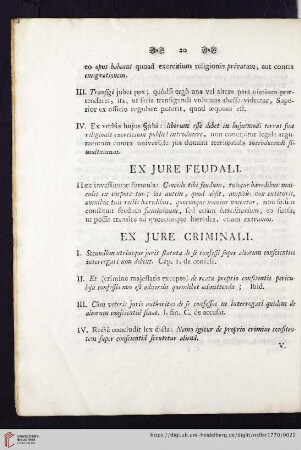 20
eo opus habeant quoad exercitium religionis privatum, aut contra
emigrationem.
III. Transigi jubet pax; quodsi ergò una vel altera pars nimium præ-
tenderet, ita, ut seria transigendi voluntas abesse videatur, Supe-
rior ex officio regulare poterit, quod æquum est.
IV. Ex verbis hujus §phi: liberum esse debet in hujusmodi terras sua
religionis exercitium publicè introducere, non conficitur legale argu-
mentum contra universale jus domini territorialis introducendi si-
multaneum.
EX JURE FEUDALI.
Hæc investituræ formula: Concedo tibi feudum, tuisque hæredibus mas-
culis ex corpore tuo; his autem, quod absit, aliquando non existentibus,
omnibus tuis reliquis hæredibus, quocunque nomine vocentur, non solùm
constituit feudum fœmininum, sed etiam hæreditarium, eo sensu,
ut possit transire ad quoscunque hæredes, etiam extraneos.
EX JURE CRIMINALI.
I. Secundùm utriusque juris statuta de se confessi super aliorum conscientiis
interrogari non debent. Cap. 1. de confess.
II. Et (crimine majestatis excepto) de reatu proprio confitentis pericu-
losa confessio non est adversùs quemlibet admittenda; Ibid.
III. Cùm veteris juris authoritas de se confessos ne interrogari quidem de
aliorum conscientiâ sinat. l. fin. C. de accusat.
IV. Rectè concludit lex dicta: Nemo igitur de proprio crimine confiten-
tem super conscientiâ scrutetur alienâ.
V.
https://digi.ub.uni-heidelberg.de/diglit/mueller1770/0020
© Universitätsbibliothek Heidelberg